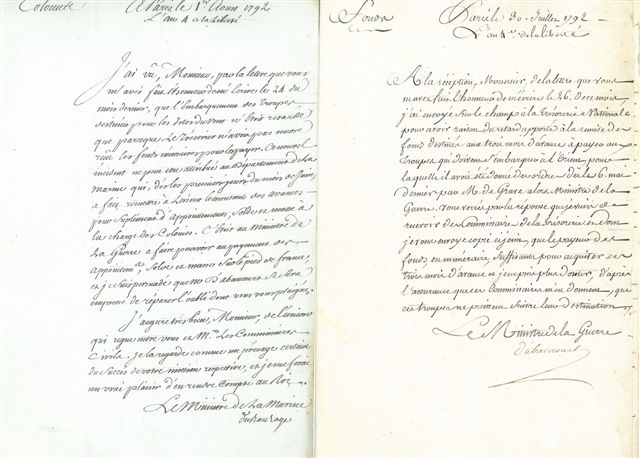 Colonies
à Paris le 1er Aoust 1792
L'an 4 de la Liberté
J'ai vû, Monsieur, par la lettre que vous
m'avez fait l'honneur de m'écrire le 24 du
mois dernier, que l'Embarquement des Troupes
destinées pour les Isles du vent n'étoit retardé
que parceque Le Trésorier n'avoit pas encore
reçu les fonds nécessaires pour le payer. Ce nouvel
incident ne peut être attribué au Département de la
marine qui, dès les premiers jours du mois de Juin,
a fait remettre à Lorient le montant des avances
pour Supplément d'appointemens, Solde et masse à
la charge des Colonies. C'étoit au Ministre de
La Guerre à faire pourvoir au payement des
appointemens, Solde et masse Sur le pied de france;
et je suis persuadé que M. D'abancourt se sera
empressé de réparer l'oubli dont vous vous plaignez.
J'augure très bien, Monsieur, de l'union
qui regne entre vous et M.rs Les Commissaires
Civils. Je la regarde comme un présage certain
du Succès de votre mission respective, et je me ferai
un vrai plaisir d'en rendre Compte au Roi.
Le Ministre de La Marine
dubouchage
Fonds
Paris le 30 Juillet 1792
L'an 4e de la liberté
A la réception, Monsieur, de la lettre que vous
m'avez fait l'honneur de m'écrire le 26 de ce mois,
j'ai envoyé Sur le champ à la trésorerie Nationale
pour avoir raison du retard apporté à la remise des
fonds destinés aux trois mois d'avance à payer aux
troupes qui doivent s'embarquer à l'Orient, pour
laquelle il avoit été donné des ordres dès le 6. mai
dernier par M. de Grave alors Ministre de la
Guerre. Vous verrez par la réponse que je viens de
recevoir des Commissaires de la trésorerie et dont
je vous envoye copie ci joint, que le payeur a des
fonds en numéraire Suffisans pour acquitter ces
trois mois d'avance et je ne puis plus douter, d'après
l'assurance que ces Commissaires m'en donnent, que
ces troupes ne prennent Suite leur destination.
Le Ministre de la Guerre
d'abancourt